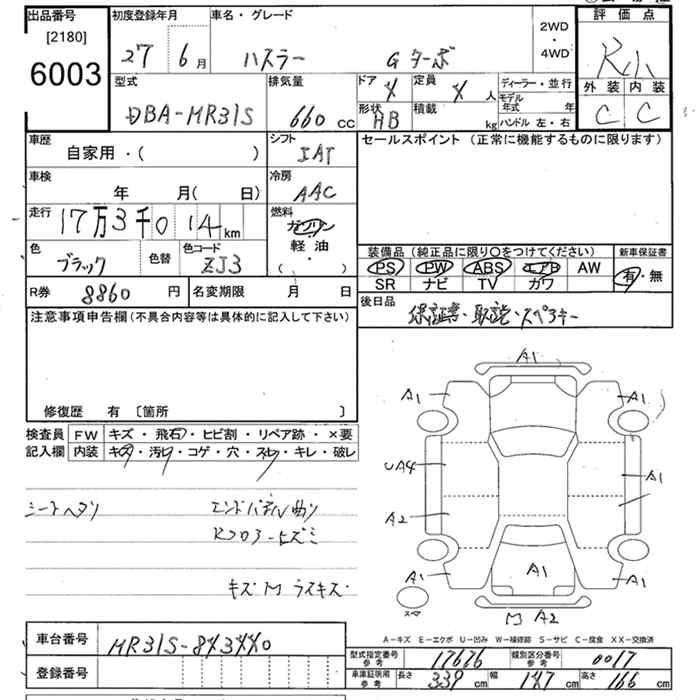 出品番号 初度登録年月 車名・グレード 2WD・4WD 評価点
[2180]
6003 27 6月 ハスラー Gターボ
外装 内装
C C
型式 排気量 ドア 4 定員 4人 ディーラー・並行
モデル年式 年
DBA-MR31S 660cc 形状 HB 積載 kg ハンドル 左・右
車歴 シフト セールスポイント (正常に機能するものに限ります)
自家用・( ) IAT
車検 冷房
年 月( 日) AAC
走行 17万3千014km 燃料
ガソリン
軽油
・
( )
色 色替 色コード
ブラック ZJ3
装備品 (純正品に限り〇をつけてください) 新車保証書
PS PW ABS エアB AW 有・無
SR ナビ TV カワ
R券 8860円 名変期限 月 日
後日品 保証書・取説・スペアキー
注意事項申告欄(不具合内容等は具体的に記入して下さい)
修復歴 有 〔箇所 〕
検査員 FW キズ・飛石・ヒビ割・リペア跡・×要
記入欄 内装 キズ・汚れ・コゲ・穴・スレ・キレ・破レ
シートヘタリ エンドパネル曲り
キズM ラスキズ
A1
A1 A1
UA4 A1
A2
A1
A1 A1
スペア
M A2
A-キズ E-エクボ U-凹み W-補修跡 S-サビ C-腐食 XX-交換済
車台番号
登録番号
型式指定番号 参考 17676 類別区分番号 参考 0017
車庫証明用 参考 長さ 339cm 幅 147cm 高さ 166cm